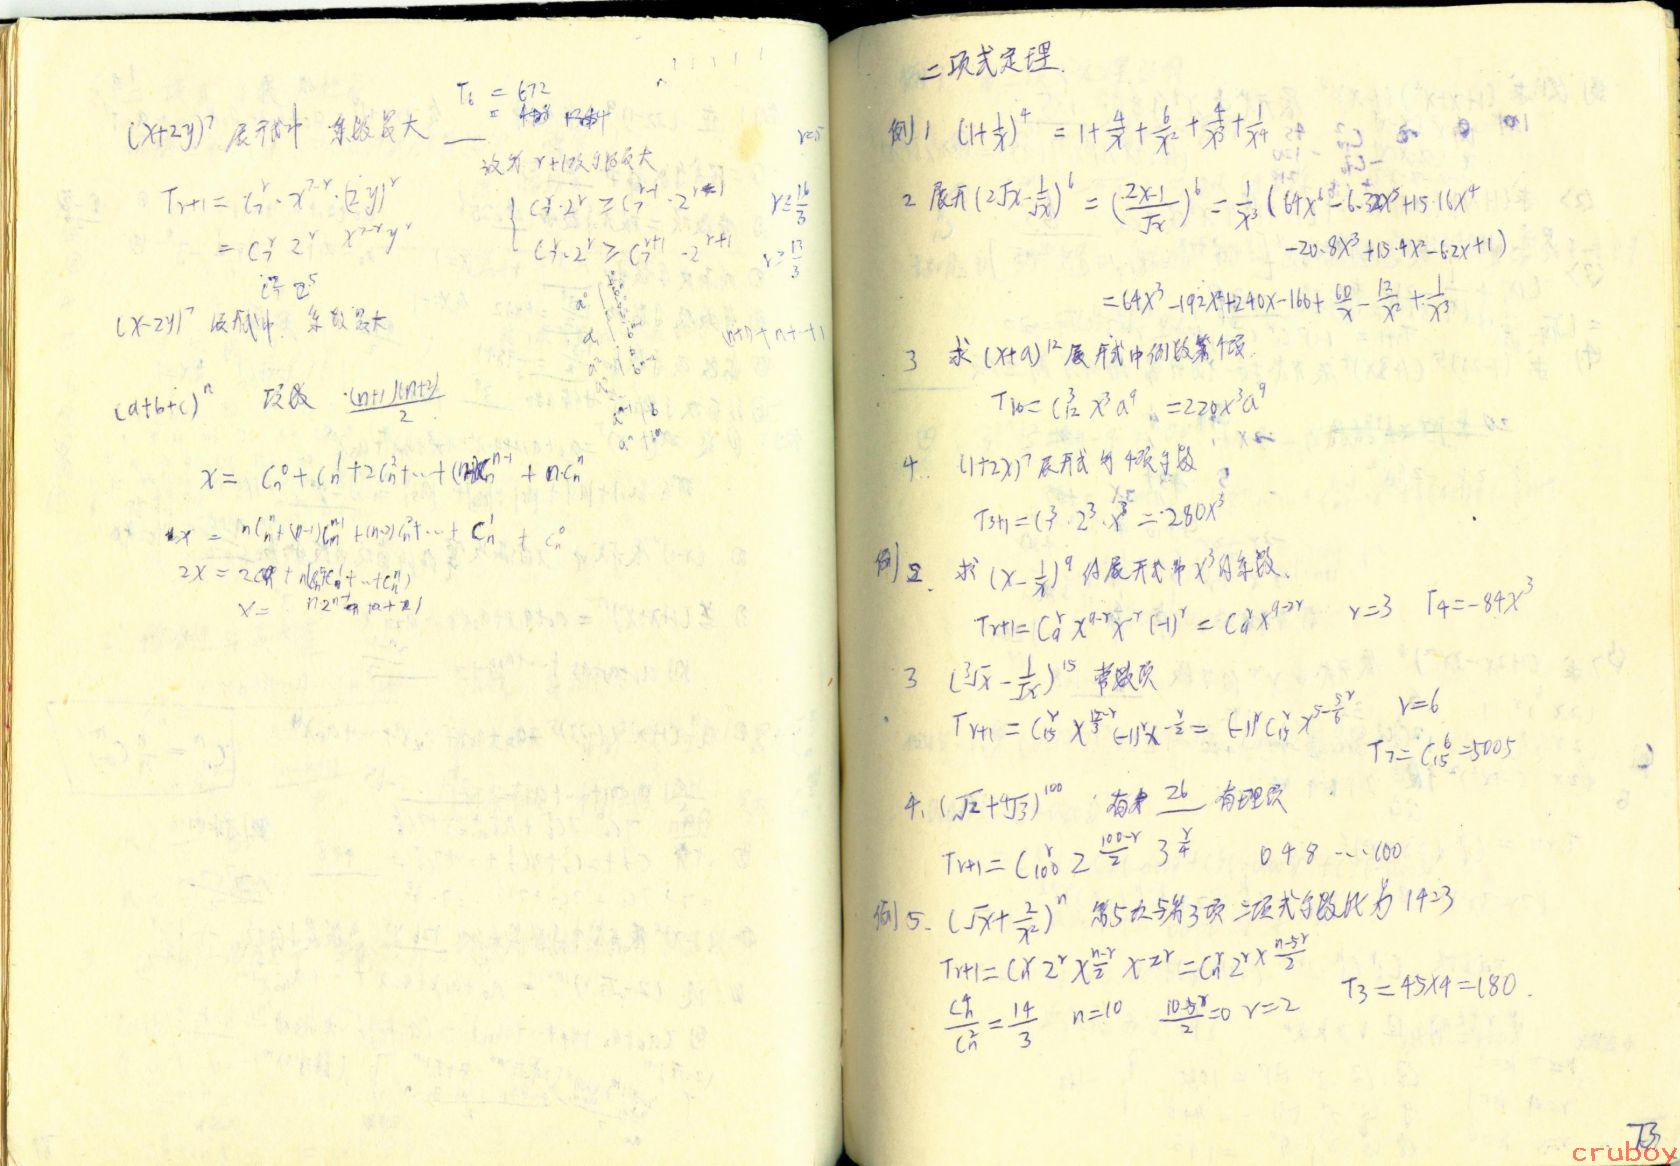 T₆ = 672
(x+2y)⁷ 展开式中 系数最大
设第 r+1 项系数最大
r=5
Tr+1 = C₇ʳ · x⁷⁻ʳ · (2y)ʳ
C₇ʳ·2ʳ ≥ C₇ʳ⁻¹ · 2ʳ⁻¹
r≤16/3
= C₇ʳ 2ʳ x⁷⁻ʳ yʳ
C₇ʳ·2ʳ ≥ C₇ʳ⁺¹ · 2ʳ⁺¹
r≥13/3
(x-2y)⁷ 展开式中 系数最大
(a+b+c)ⁿ 项数 (n+1)(n+2)/2
x = Cn⁰ + Cn¹ + 2Cn² + … + (n-1)Cnⁿ⁻¹ + n·Cnⁿ
x = nCnⁿ + (n-1)Cnⁿ⁻¹ + (n-2)Cn² + … + Cn¹ + Cn⁰
2x =
x =
二项式定理.
例1 (1+1/x)⁴ = 1 + 4/x + 6/x² + 4/x³ + 1/x⁴
2 展开 (2√x - 1/√x)⁶ = ((2x-1)/√x)⁶ = 1/x³ (64x⁶ - 6·32x⁵ + 15·16x⁴
-20·8x³ + 15·4x² - 6·2x + 1)
= 64x³ - 192x² + 240x - 160 + 60/x - 12/x² + 1/x³
3 求 (x+a)¹² 展开式中倒数第4项.
T₁₀ = C₁₂³ x³a⁹ = 220x³a⁹
4. (1+2x)⁷ 展开式 第4项系数
T₃₊₁ = C₇³ · 2³ · x³ = 280x³
例2. 求 (x - 1/x)⁹ 的展开式中 x³的系数.
Tr+1 = C₉ʳ x⁹⁻ʳ x⁻ʳ (-1)ʳ = C₉ʳ x⁹⁻²ʳ r=3 T₄ = -84x³
3 (³√x - 1/√x)¹⁵ 常数项
Tr+1 = C₁₅ʳ x^((15-r)/3) (-1)ʳ x^(-r/2) = (-1)ʳ C₁₅ʳ x^(5-5r/6) r=6
T₇ = C₁₅⁶ = 5005
4. (√2 + ⁴√3)¹⁰⁰ 有 26 有理项
Tr+1 = C₁₀₀ʳ 2^((100-r)/2) 3^(r/4) 0 4 8 … 100
例5. (√x + 2/x²)ⁿ 第5项与第3项二项式系数比为 14:3
Tr+1 = Cnʳ 2ʳ x^((n-r)/2) x⁻²ʳ = Cnʳ 2ʳ x^((n-5r)/2)
Cn⁴/Cn² = 14/3 n=10 (10-5r)/2 = 0 r=2 T₃ = 45×4 = 180.
73
cruboy